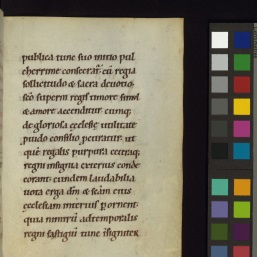 publica tunc suo initio pul
cherrime consecrat. cũ regia
sollicitudo & sacra deuotio,
sc̃o superni regis timore simul
& amore accenditur. cumq;
de gloriosa ęcclesię utilitate
puido consilio pertractatur. ut
quę regalis purpura ceteraq;
regni insignia exterius conde
corant. eundem laudabilia
uota erga dm̃ & sc̃am eius
ęcclesiam interius ꝑornent.
quia nimirũ ad temporalis
regni fastigiũ tunc insigniter